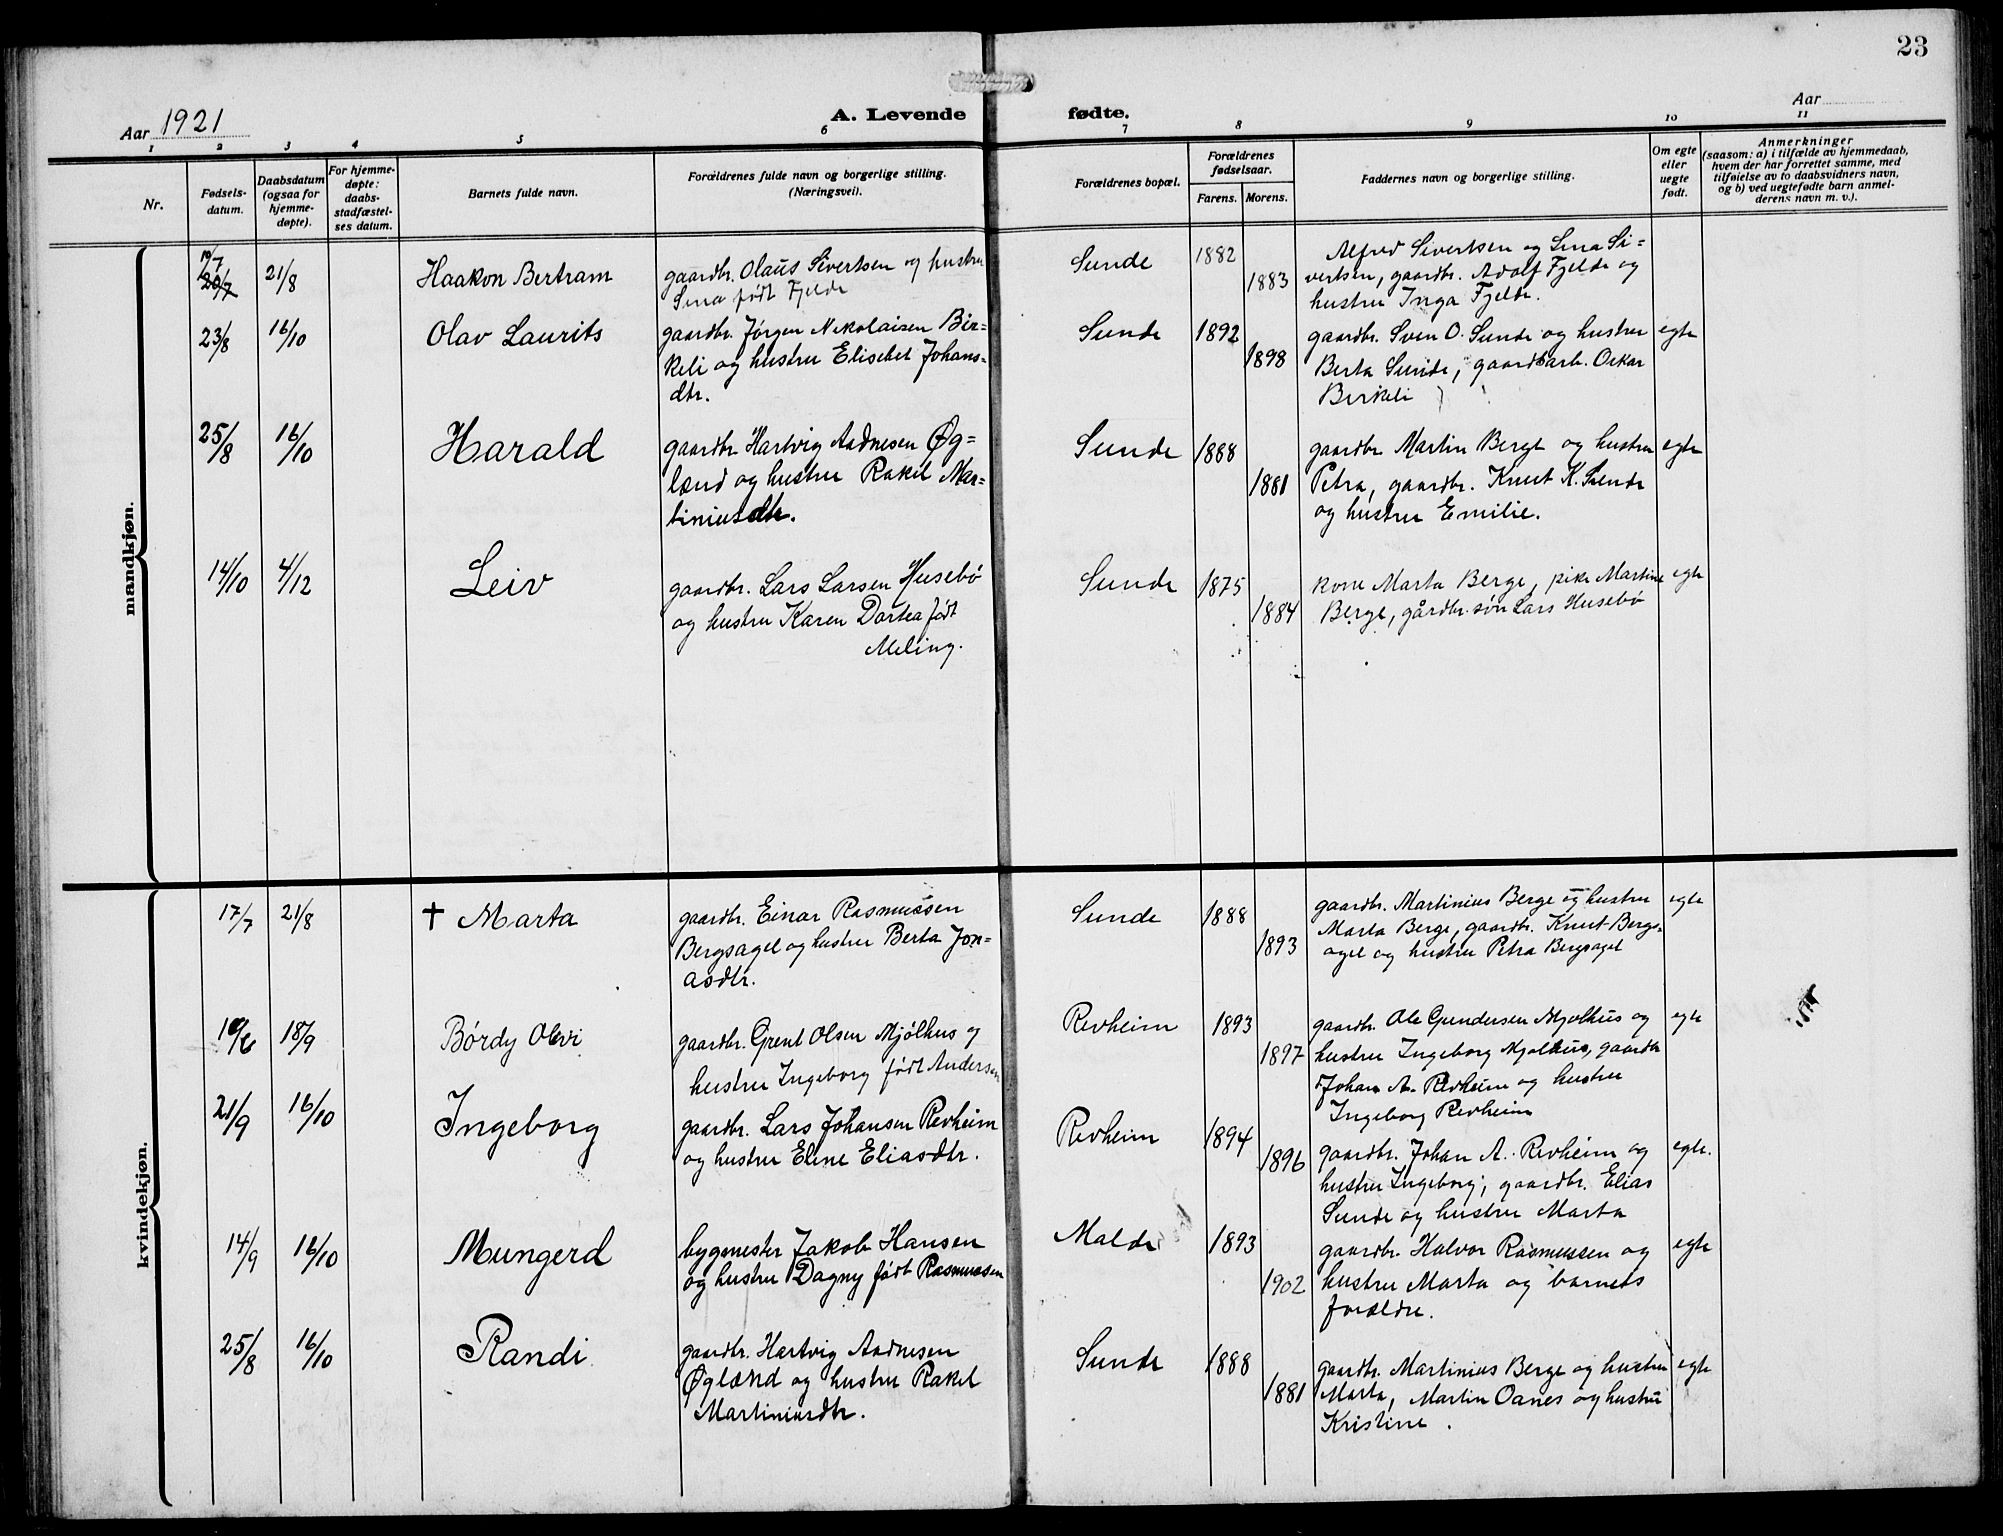 23
Aar 1921
A. Levende fødte.
Aar
1 2 3 4 5 6 7 8 9 10 11
Nr.
Fødsels-
datum.
Daabsdatum
(ogsaa for
hjemme-
døpte).
For hjemme-
døpte:
daabs-
stadfæstel-
ses datum.
Barnets fulde navn.
Forældrenes fulde navn og borgerlige stilling.
(Næringsvei).
Forældrenes bopæl.
Forældrenes
fødselsaar.
Farens. Morens.
Faddernes navn og borgerlige stilling.
Om egte
eller
uegte
født.
Anmerkninger
(saasom: a) i tilfælde av hjemmedaab,
hvem der har forrettet samme, med
tilføielse av to daabsvidners navn,
og b) ved uegtefødte barn anmel-
derens navn m. v.).
mandkjøn.
21/8
Haakon Bertram
gaardbr. Olaus Sivertsen og hustru
Sina født Fjelde
Sunde
1882
1883
Alfred Sivertsen og Sina Si=
vertsen, gaardbr. Adolf Fjelde og
hustru Inga Fjelde.
23/8
16/10
Olav Laurits
gaardbr. Jørgen Nikolaisen Bir=
keli og hustru Elisebet Johans=
dtr.
Sunde
1892
1898
gaardbr. Sven O. Sunde og hustru
Berta Sunde, gaardsarb. Oskar
Birkeli
egte
25/8
16/10
Harald
gaardbr. Hartvig Aadnesen Øg=
lænd og hustru Rakel Mar=
tiniusdtr.
Sunde
1888
1881
gaardbr. Martin Berge og hustru
Petra, gaardbr. Knut K. Sunde
og hustru Emilie.
egte
14/10
4/12
Leiv
gaardbr. Lars Larsen Husebø
og hustru Karen Dortea født
Meling.
Sunde
1875
1884
kone Marta Berge, pike Martine
Berge, gårdbr. søn Lars Husebø
egte
kvindekjøn.
17/7
21/8
† Marta
gaardbr. Einar Rasmussen
Bergsagel og hustru Berta Jon=
asdtr.
Sunde
1888
1893
gaardbr. Martinius Berge og hustru
Marta Berge, gaardbr. Knut Bergs=
agel og hustru Petra Bergsagel
egte
18/9
Børdy
gaardbr. Grent Olsen Mjølhus og
hustru Ingeborg født Andersen
Revheim
1893
1897
gaardbr. Ole Gundersen Mjølhus og
hustru Ingeborg Mjølhus, gaardbr
Johan A. Revheim og hustru
Ingeborg Revheim
egte
21/9
16/10
Ingeborg
gaardbr. Lars Johansen Revheim
og hustru Eline Eliasdtr.
Revheim
1894
1896
gaardbr. Johan A. Revheim og
hustru Ingeborg, gaardbr. Elias
Sunde og hustru Marta
egte.
14/9
16/10
Mungerd
bygmester Jakob Hansen
og hustru Dagny født Rasmussen
Malde
1893
1902
gaardbr. Halvor Rasmussen og
hustru Marta og barnets
forældre.
egte
25/8
16/10
Randi
gaardbr. Hartvig Aadnesen
Øglænd og hustru Rakel
Martiniusdtr.
Sunde
1888
1881
gaardbr. Martinius Berge og hustru
Marta, Martin Oanes og hustru
Kristine.
egte